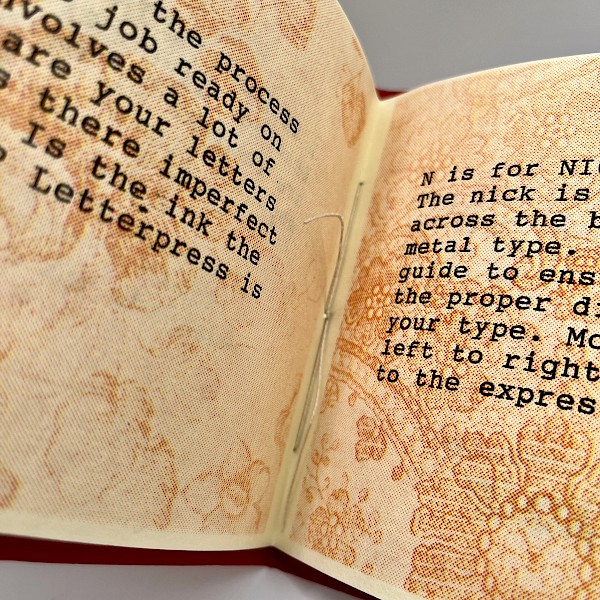 the process
job ready on
volves a lot of
are your letters
there imperfect
Is the ink the
Letterpress is
N is for NIC
The nick is
across the b
metal type.
guide to ens
the proper di
your type. Mo
left to right
to the expres